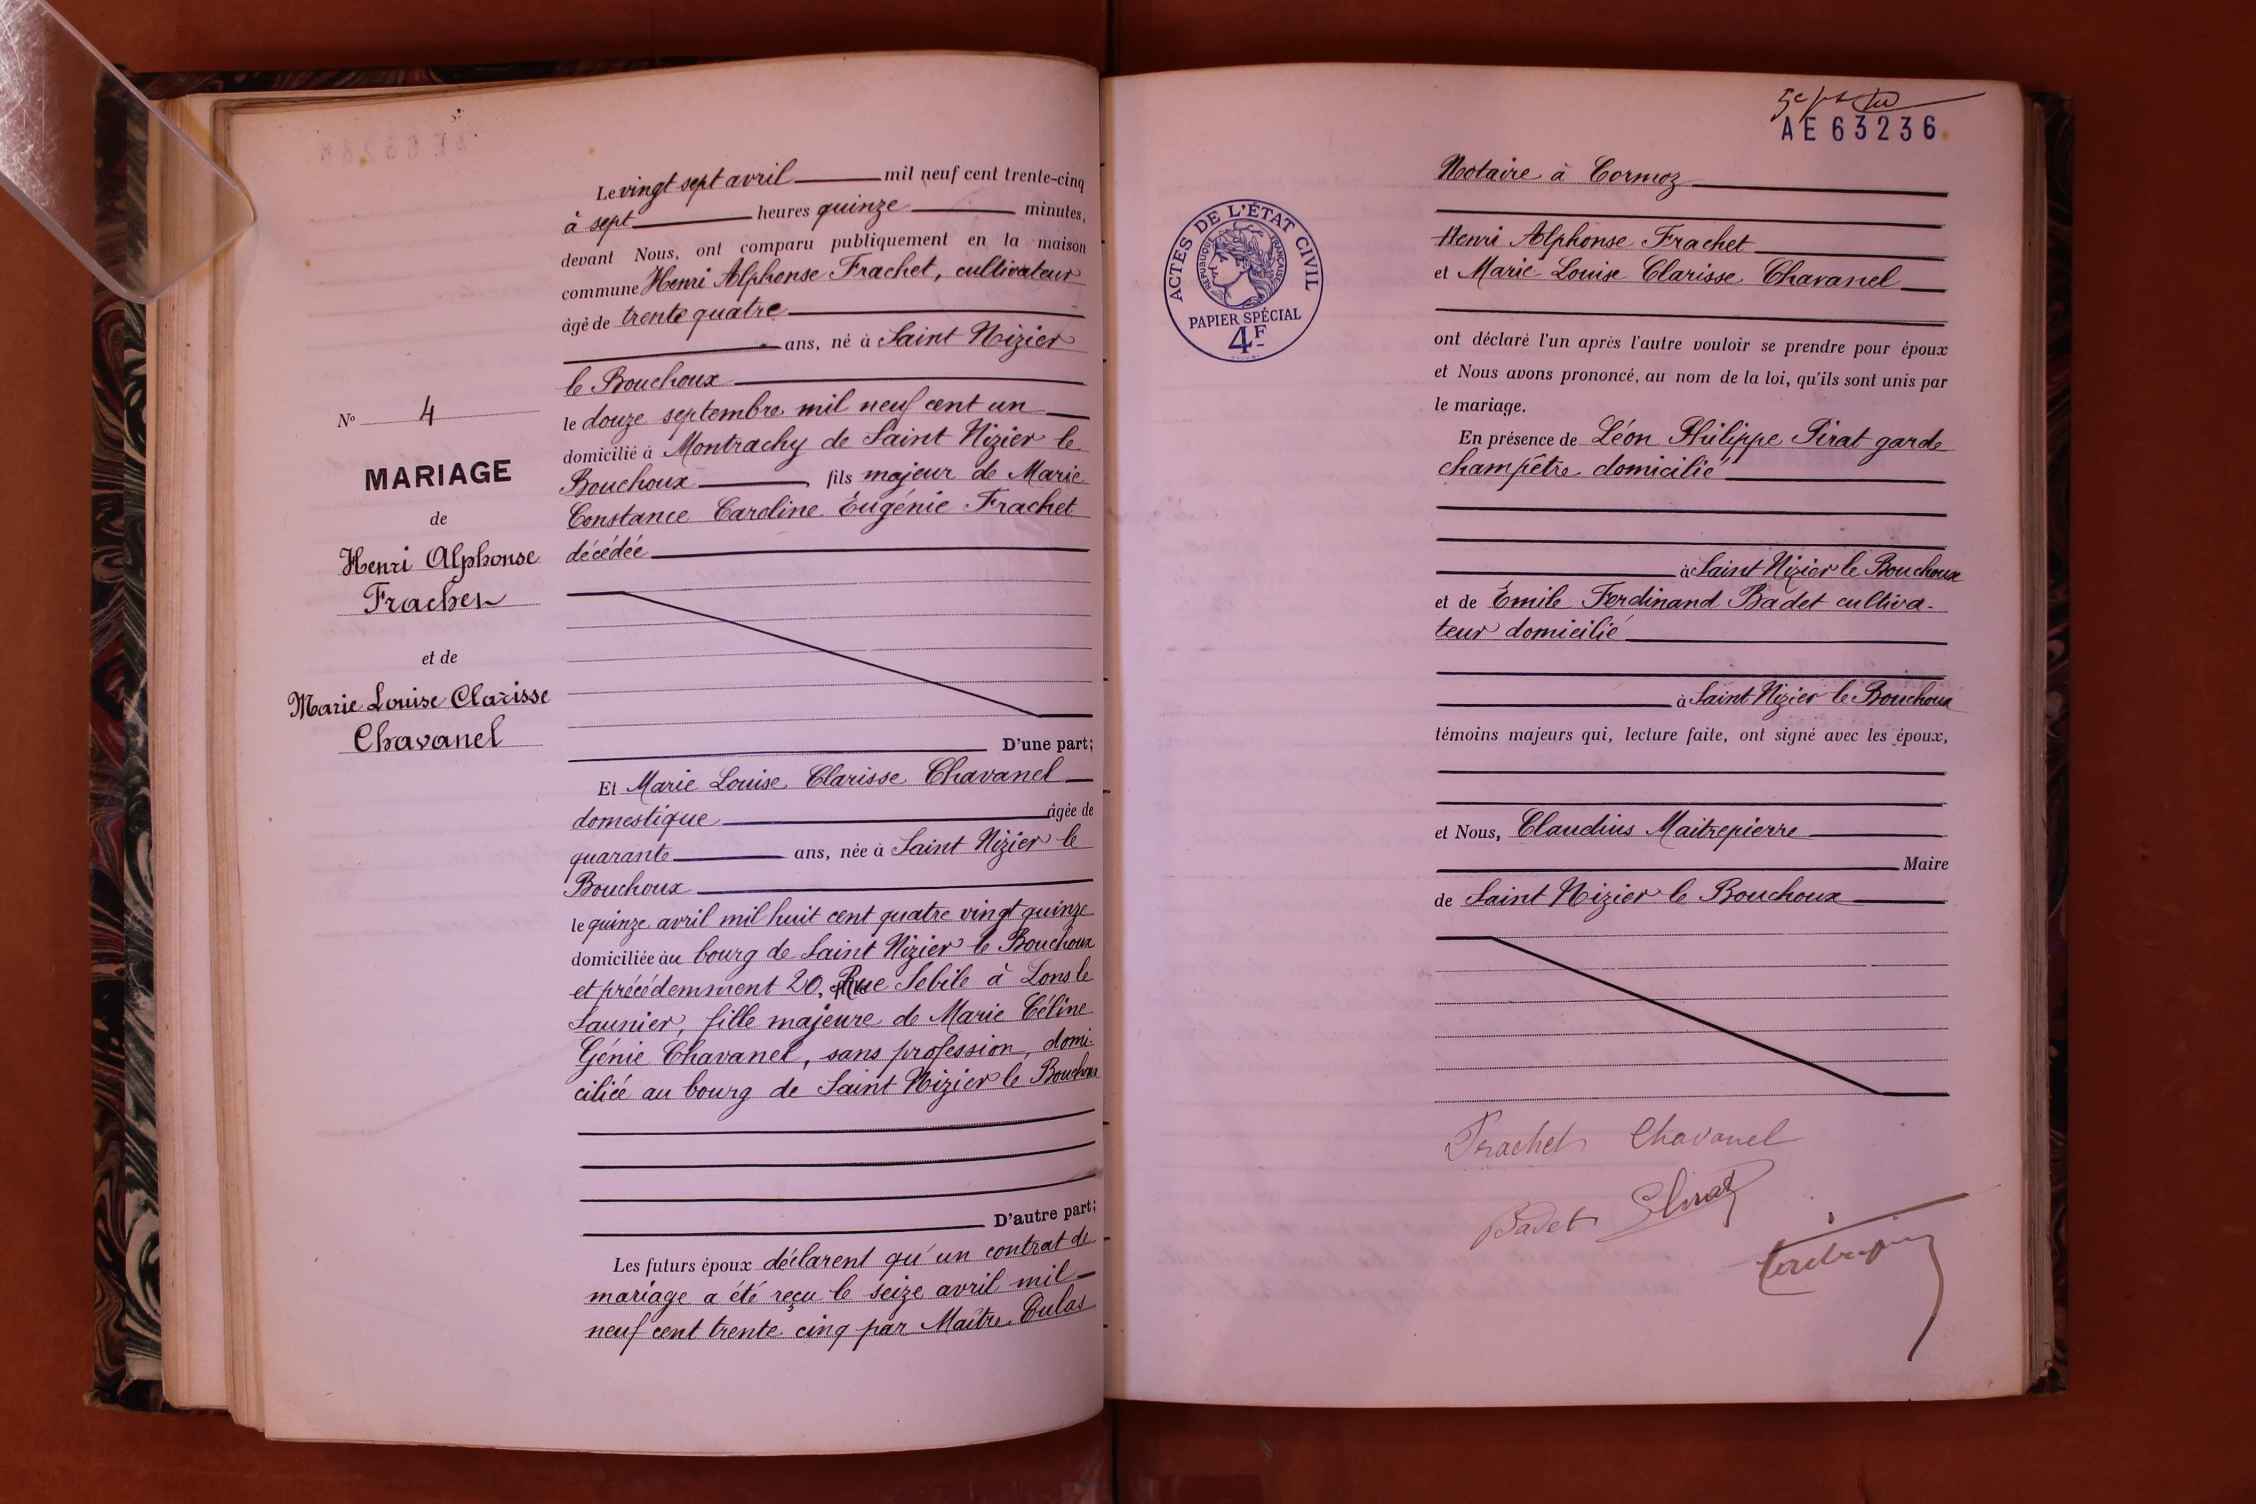 Le vingt sept avril mil neuf cent trente-cinq
à sept heures quinze minutes,
devant Nous, ont comparu publiquement en la maison
commune Henri Alphonse Frachet, cultivateur
âgé de trente quatre
ans, né à Saint Nizier
le Bouchoux
le douze septembre mil neuf cent un
domicilié à Montrachy de Saint Nizier le
Bouchoux, fils majeur de Marie
Constance Caroline Eugénie Frachet
décédée
D'une part;
Nº 4
MARIAGE
de
Henri Alphonse
Frachet
et de
Marie Louise Clarisse
Chavanel
Et Marie Louise Clarisse Chavanel
domestique âgée de
quarante ans, née à Saint Nizier le
Bouchoux
le quinze avril mil huit cent quatre vingt quinze
domiciliée au bourg de Saint Nizier le Bouchoux
et précédemment 20, Rue Sebile à Lons le
Saunier, fille majeure de Marie Céline
Génie Chavanel, sans profession, domi-
ciliée au bourg de Saint Nizier le Bouchoux
D'autre part;
Les futurs époux déclarent qu'un contrat de
mariage a été reçu le seize avril mil
neuf cent trente cinq par Maître Dulas
AE63236
ACTES DE L'ÉTAT CIVIL
RÉPUBLIQUE FRANÇAISE
PAPIER SPÉCIAL
4F
Notaire à Cormoz
Henri Alphonse Frachet
et Marie Louise Clarisse Chavanel
ont déclaré l'un après l'autre vouloir se prendre pour époux
et Nous avons prononcé, au nom de la loi, qu'ils sont unis par
le mariage.
En présence de Léon Philippe Pirat garde
champêtre domicilié
à Saint Nizier le Bouchoux
et de Émile Ferdinand Badet cultiva-
teur domicilié
à Saint Nizier le Bouchoux
témoins majeurs qui, lecture faite, ont signé avec les époux,
et Nous, Claudius Maitrepierre
Maire
de Saint Nizier le Bouchoux
Frachet Chavanel
Badet